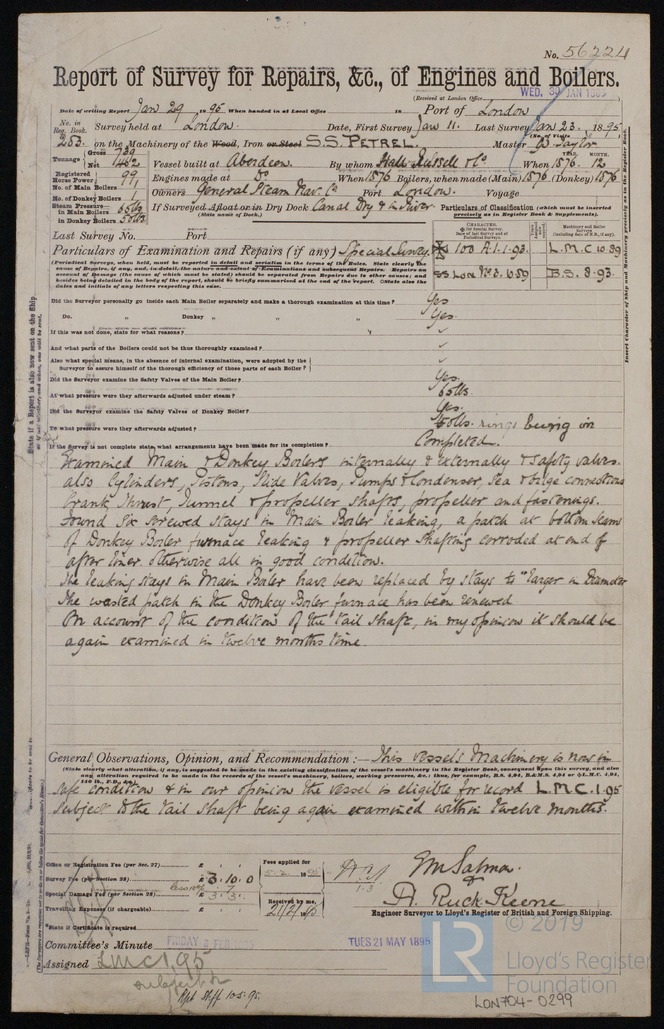 No. 56224
Report of Survey for Repairs, &c., of Engines and Boilers.
WED. 30 JAN 1895
(Received at London Office
Date of writing Report Jan 29 1895 When handed in at Local Office in Port of London
No. in Reg. Book. Survey held at London. Date, First Survey Jan 11. Last Survey Jan 23. 1895
253. on the Machinery of the Wood, Iron or Steel S.S. PETREL. Master Taylor
Tonnage Gross 739 Net 462 Vessel built at Aberdeen. By whom Hall Russell & Co When 1876. 12
Registered Horse Power 99 Engines made at Do When 1876 Boilers, when made (Main) 1876 (Donkey) 1876
No. of Main Boilers Owners General Steam Nav. Co Port London. Voyage
No. of Donkey Boilers
Steam Pressure in Main Boilers 65lbs If Surveyed Afloat or in Dry Dock Canal Dry & in River
in Donkey Boilers 50lbs (State name of Dock.)
Particulars of Classification (which must be inserted precisely as in Register Book & Supplements).
Last Survey No. Port
Particulars of Examination and Repairs (if any) Special Survey.
100 A.1.1.93. L.M.C 10.89
SS Lon No 3. 10.89 B.S. 8.93.
Did the Surveyor personally go inside each Main Boiler separately and make a thorough examination at this time? Yes.
Do. " Donkey " " " Yes.
If this was not done, state for what reasons?
And what parts of the Boilers could not be thoroughly examined?
Also what special means, in the absence of internal examination, were adopted by the Surveyor to assure himself of the thorough efficiency of those parts of each Boiler?
Did the Surveyor examine the Safety Valves of the Main Boiler? Yes.
At what pressure were they afterwards adjusted under steam? 65lbs.
Did the Surveyor examine the Safety Valves of Donkey Boiler? Yes.
To what pressure were they afterwards adjusted? 50lbs. rings being in
If the Survey is not complete state what arrangements have been made for its completion? Completed.
Examined Main & Donkey Boilers internally & externally & safety valves.
also Cylinders, Pistons, Slide Valves, Pumps & Condenser, Sea & bilge connections
Crank, Thrust, Tunnel & propeller shafts, propeller and fastenings.
Found Six screwed stays in Main Boiler leaking, a patch at bottom seam
of Donkey Boiler furnace leaking & propeller shafting corroded at end of
after liner otherwise all in good condition.
The leaking stays in Main Boiler have been replaced by stays larger in Diameter
The wasted patch in the Donkey Boiler furnace has been renewed
On account of the condition of the tail shaft, in my opinion it should be
again examined in twelve months time.
General Observations, Opinion, and Recommendation:— This vessels Machinery is now in
(State clearly what alteration, if any, is suggested to be made in the existing classification of the vessel's machinery in the Register Book, consequent upon this survey, and also any alteration required to be made in the records of the vessel's machinery, boilers, working pressures, &c.: thus, for example, B.S. 4,94, B.&M.S. 4,94, or L.M.C. 4,94, 140 lb., F.D., &c.)
safe condition & in our opinion the vessel is eligible for record L.M.C. 1.95
subject to the tail shaft being again examined within twelve months.
Office or Registration Fee (per Sec. 27) £ : :
Survey Fee (per Section 28) £ 3.10.0
Special Damage Fee (per Section 28) £ 3.3.
Travelling Expenses (if chargeable) £ : :
Fees applied for
Received by me,
A. Ruck Keene
Engineer Surveyor to Lloyd's Register of British and Foreign Shipping.
*State if Certificate is required
Committee's Minute FRIDAY 8 FEB 1895 TUES 21 MAY 1895
Assigned LMC 1.95
© 2019
LR Lloyd's Register Foundation
LON704-0299